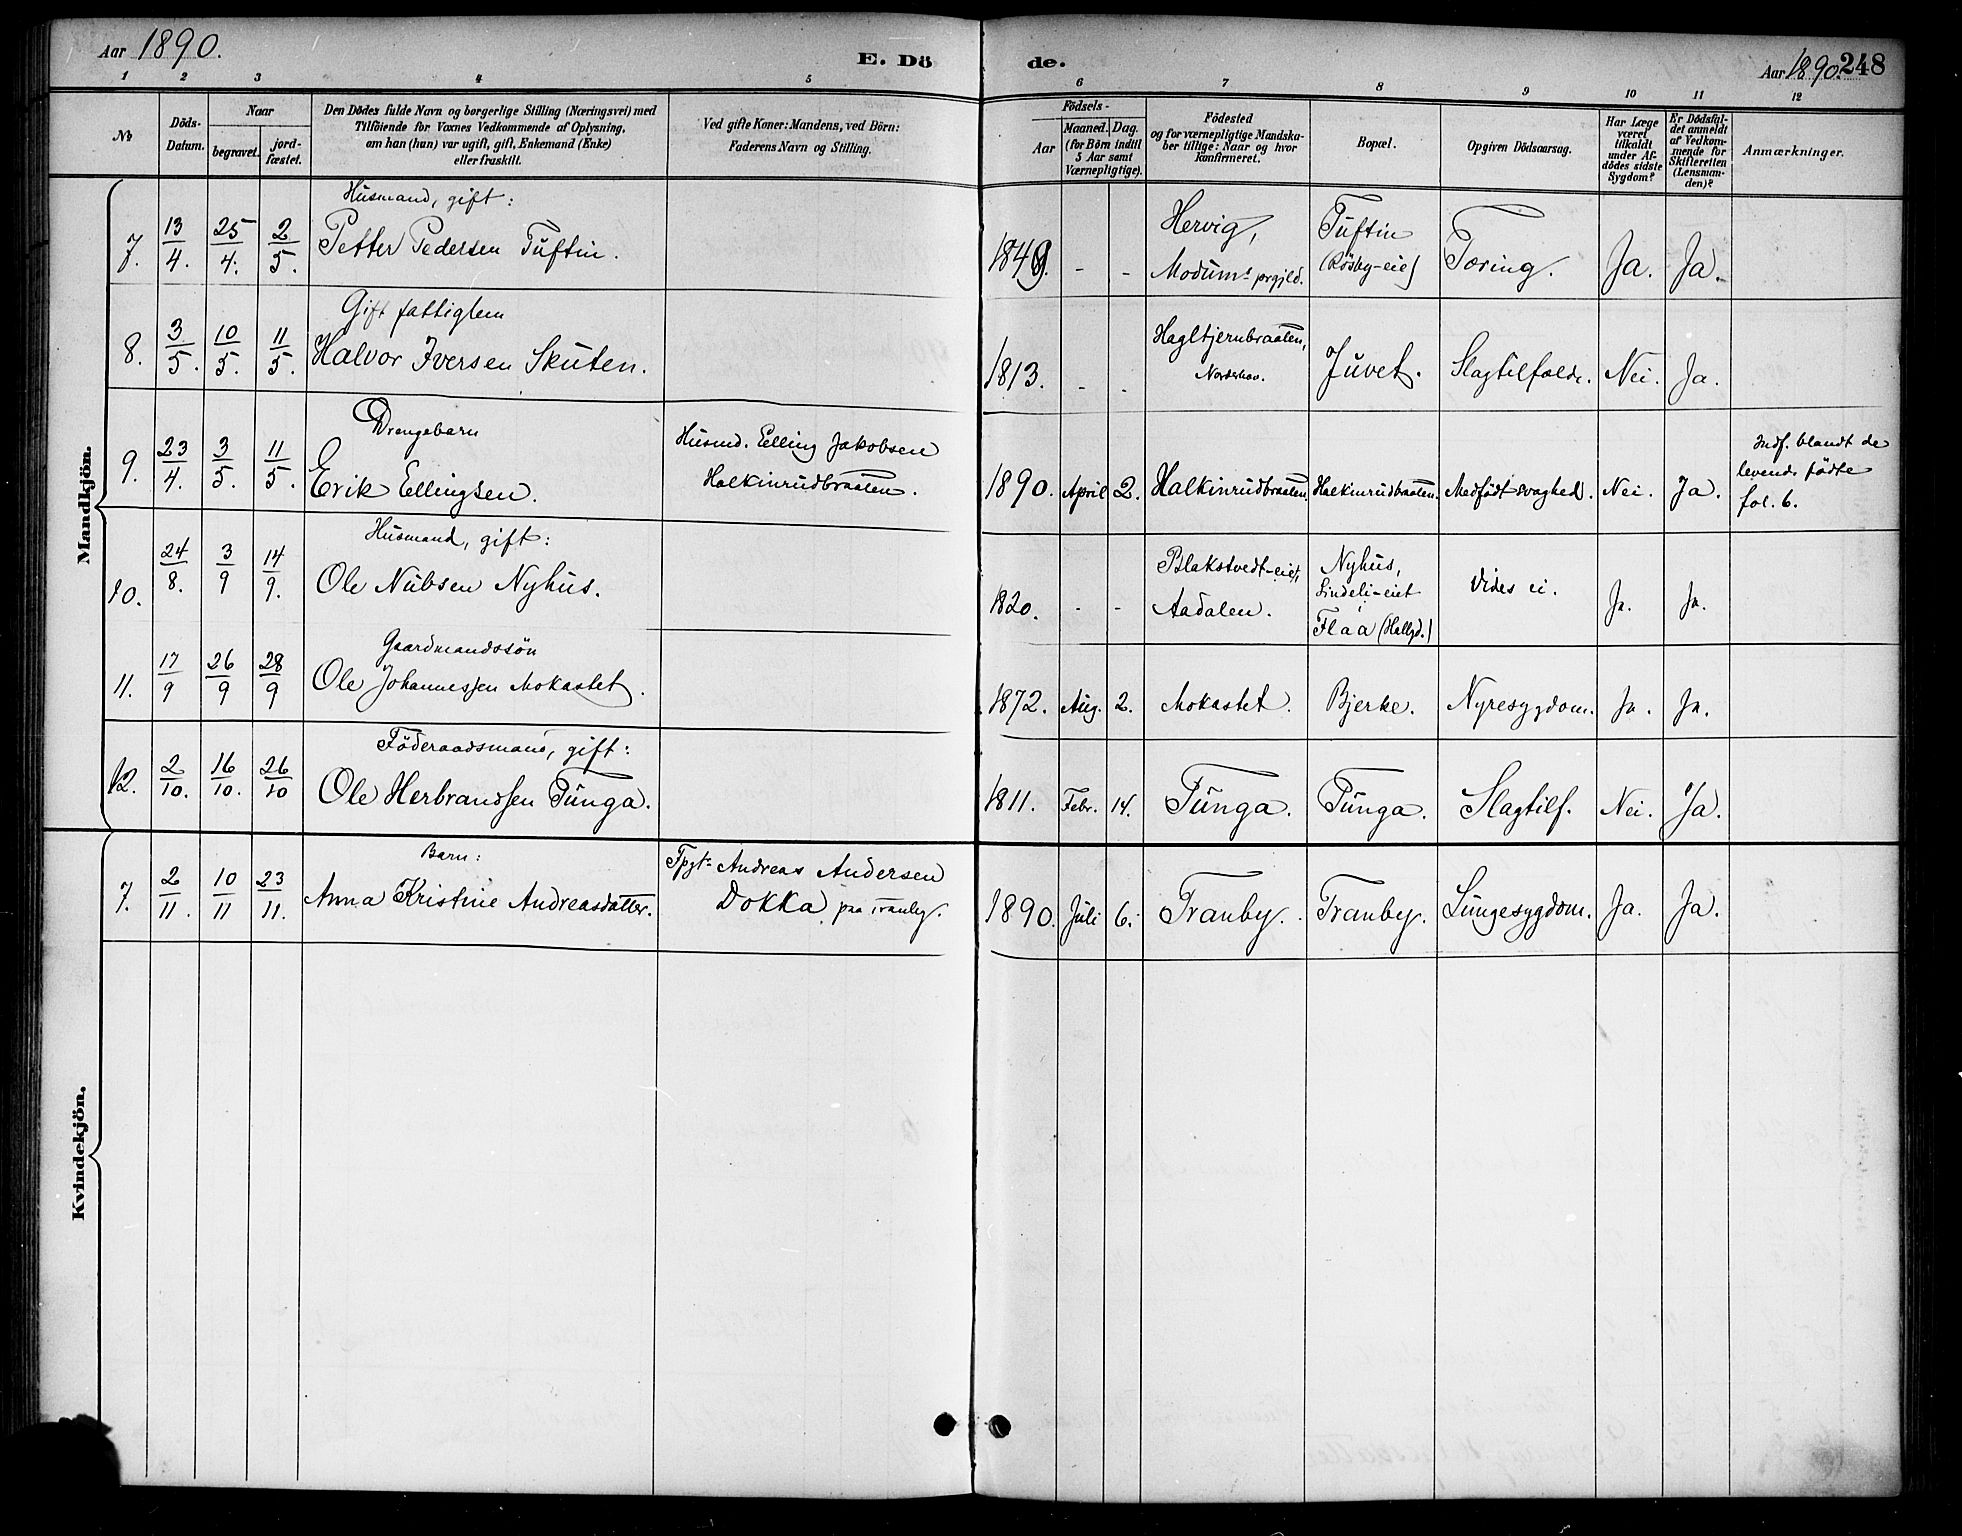 Aar 1890.
E. Dö
de.
Aar 1890. 248
1 2 3 4 5 6 7 8 9 10 11 12
No
Döds-
Datum.
Naar
begravet.
jord-
fæstet.
Den Dödes fulde Navn og borgerlige Stilling (Næringsvei) med
Tilföiende for Voxnes Vedkommende af Oplysning,
om han (hun) var ugift, gift, Enkemand (Enke)
eller fraskilt.
Ved gifte Koner: Mandens, ved Börn:
Faderens Navn og Stilling.
Födsels-
Aar
Maaned. Dag.
(for Börn indtil
5 Aar samt
Værnepligtige).
Födested
og for værnepligtige Mandska-
ber tillige: Naar og hvor
konfirmeret.
Bopæl.
Opgiven Dödsaarsag.
Har Læge
været
tilkaldt
under Af-
dödes sidste
Sygdom?
Er Dödsfal-
det anmeldt
af Vedkom-
mende for
Skifteretten
(Lensman-
den)?
Anmærkninger.
Mandkjön.
7. 13/4. 25/4. 2/5.
Husmand, gift:
Petter Pedersen Tuftin.
1849. - -
Hervig,
Modums prgjld.
Tuftin
(Rösby-eie)
Tæring. Ja. Ja.
8. 3/5. 10/5. 11/5.
Gift fattiglem
Halvor Iversen Skuten.
1813. - -
Hagltjernbraaten,
Norderhov.
Juvet. Slagtilfælde. Nei. Ja.
9. 23/4. 3/5. 11/5.
Drengebarn
Erik Ellingsen.
Husmd. Elling Jakobsen
Halkinrudbraaten.
1890. April 2. Halkinrudbraaten. Halkinrudbraaten. Medfödt svaghed. Nei. Ja.
Indf. blandt de
levende fødte
fol. 6.
10. 24/8. 3/9 14/9.
Husmand, gift:
Ole Nubsen Nyhus.
1820. - -
Blakstvedt-eiet,
Aadalen.
Nyhus,
Lindeli-eiet
i
Flaa (Hallgd.)
Vides ei. Ja. Ja.
11. 17/9 26/9 28/9
Gaardmandssön
Ole Johannessen Mokastet.
1872. Aug. 2. Mokastet. Bjerke. Nyresygdom. Ja. Ja.
12. 2/10. 16/10. 26/10
Föderaadsmand, gift:
Ole Herbrandsen Tunga.
1811. Febr. 14. Tunga. Tunga. Slagtilf. Nei. Ja.
Kvindekjön.
7. 2/11. 10/11 23/11.
Barn:
Anna Kristine Andreasdatter.
Fpgt. Andreas Andersen
Dokka paa Tranby.
1890. Juli 6. Tranby. Tranby. Lungesygdom. Ja. Ja.